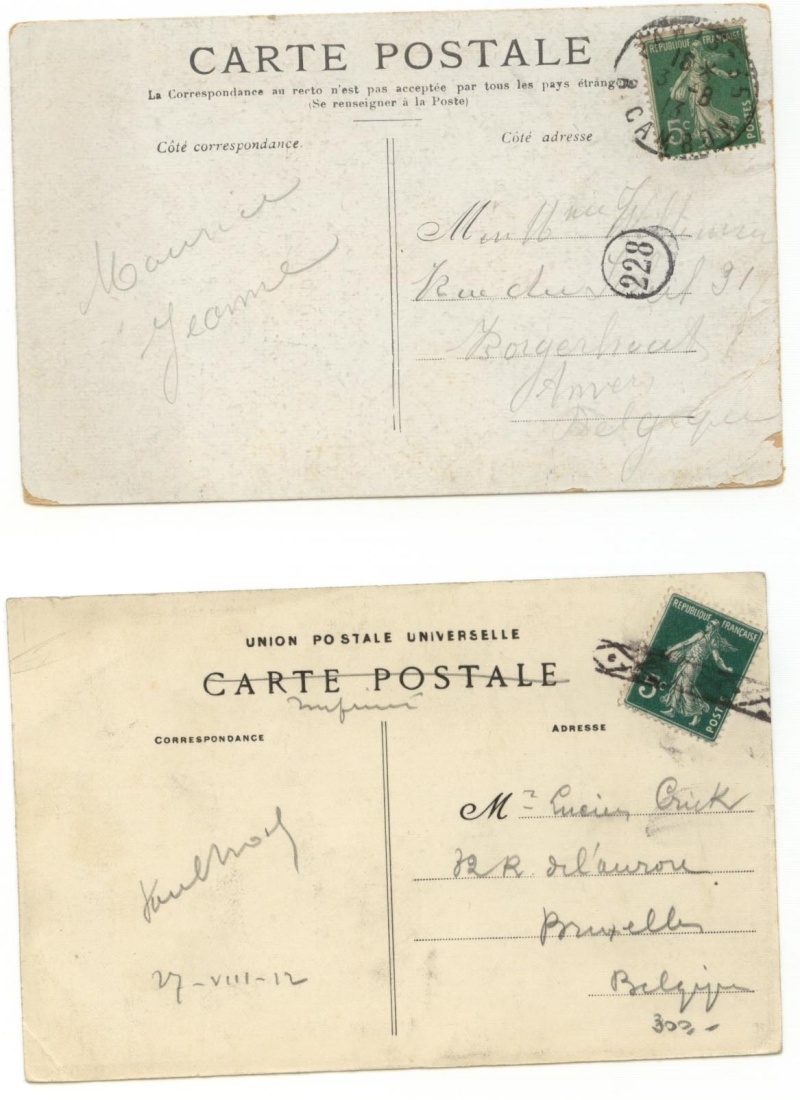 CARTE POSTALE
La Correspondance au recto n'est pas acceptée par tous les pays étrangers
(Se renseigner à la Poste)
Côté correspondance
Côté adresse
RÉPUBLIQUE FRANÇAISE
5c
POSTES
CAMBON
Maurice
Jeanne
228
Rue du 31
Borgerhout
Anvers
Belgique
UNION POSTALE UNIVERSELLE
CARTE POSTALE
Imprimé
CORRESPONDANCE
ADRESSE
RÉPUBLIQUE FRANÇAISE
5c
POSTES
Mr Lucien Crick
72 R. de l'aurore
Bruxelles
Belgique
27-VIII-12
300,-